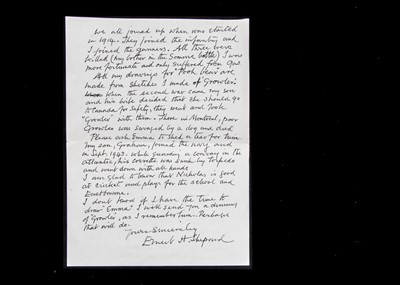 we all joined up when war started
in 1914. They joined the infantry and
I joined the gunners. All three were
killed (my brother in the Somme battle) I was
more fortunate and only suffered from
All my drawings for "Pooh Bear" are
made from sketches I made of Growler.
When the second war came my son
and his wife decided that she should go
to Canada for safety, they went and took
"Growler" with them. There in Montreal, poor
Growler was savaged by a dog and died
Please ask Emma to shed a tear for him
My son, Graham, joined the Navy and
in Sept. 1943. while guarding a convoy in the
Atlantic, his corvette was sunk by torpedo
and went down with all hands
I am glad to know that Nicholas is good
at cricket and plays for the school and
Eastbourne.
I don't know if I have the time to
draw "Emma" I will send you a drawing
of "Growler", as I remember him. Perhaps
that will do.
Yours Sincerely
Ernest H. Shepard